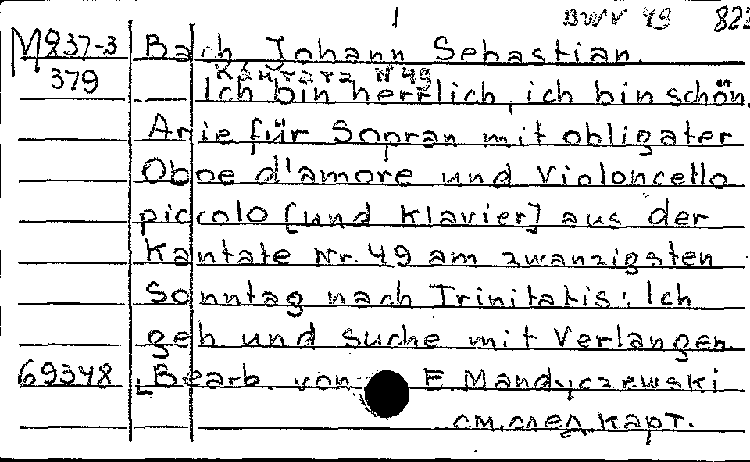 1 BWV 49 823
M 837-3 Bach Johann Sebastian.
379 Кантата N 49
Ich bin herrlich, ich bin schön.
Arie für Sopran mit obligater
Oboe d'amore und Violoncello
piccolo [und Klavier] aus der
Kantate Nr. 49 am zwanzigsten
Sonntag nach Trinitatis: Ich
geh und suche mit Verlangen.
69348 [Bearb. von E Mandyczewski
см. след карт.